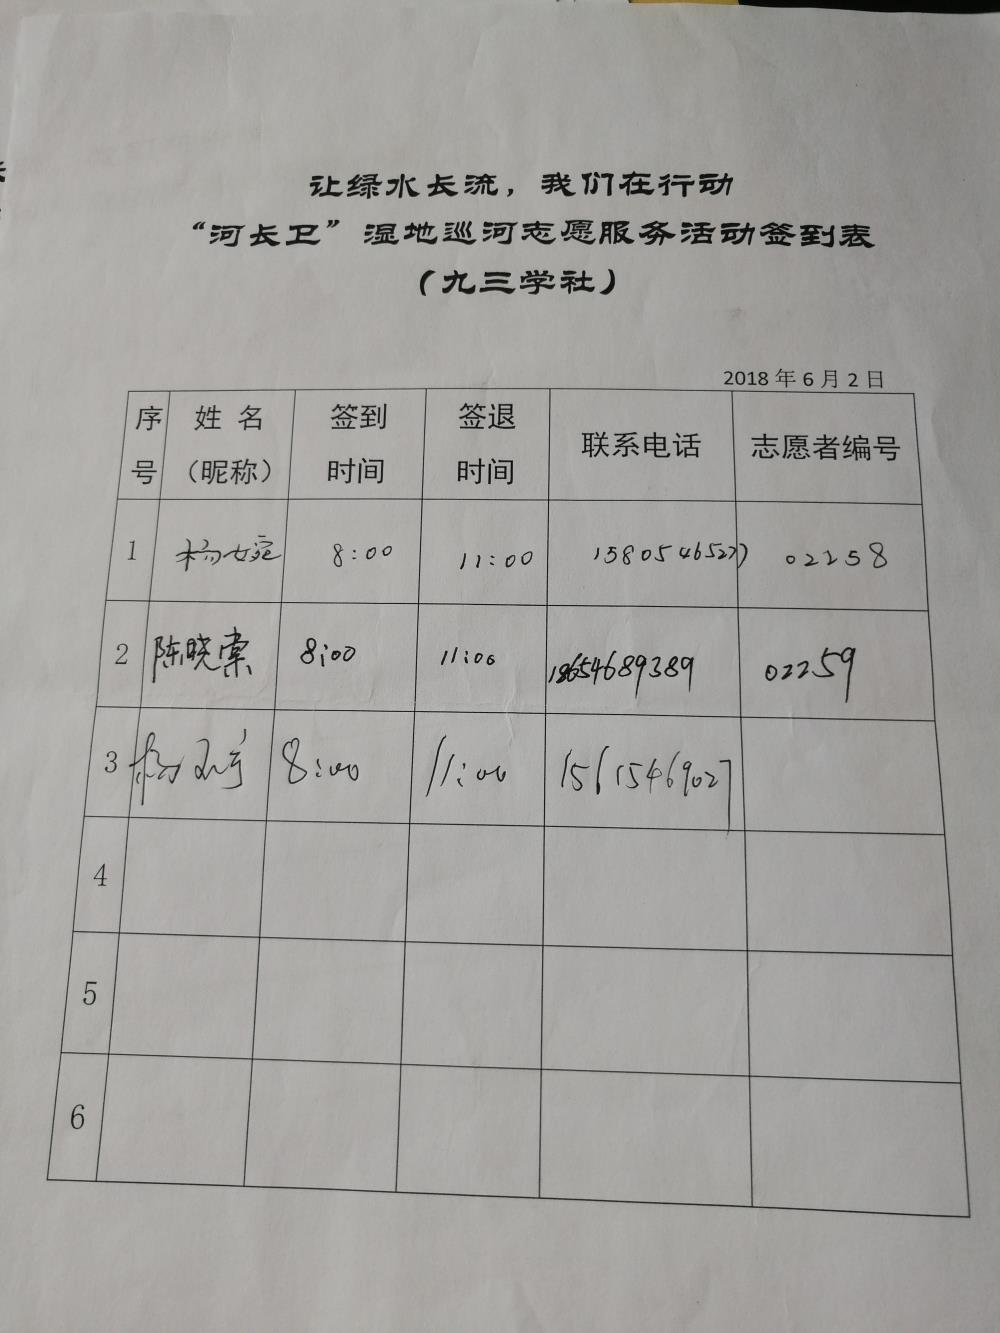 让绿水长流，我们在行动
“河长卫”湿地巡河志愿服务活动签到表
（九三学社）
2018 年 6 月 2 日
序号 姓 名（昵称） 签到时间 签退时间 联系电话 志愿者编号
1 杨婉 8:00 11:00 15805465277 02258
2 陈晓棠 8:00 11:00 18654689389 02259
3 杨 8:00 11:00 15615469027
4
5
6